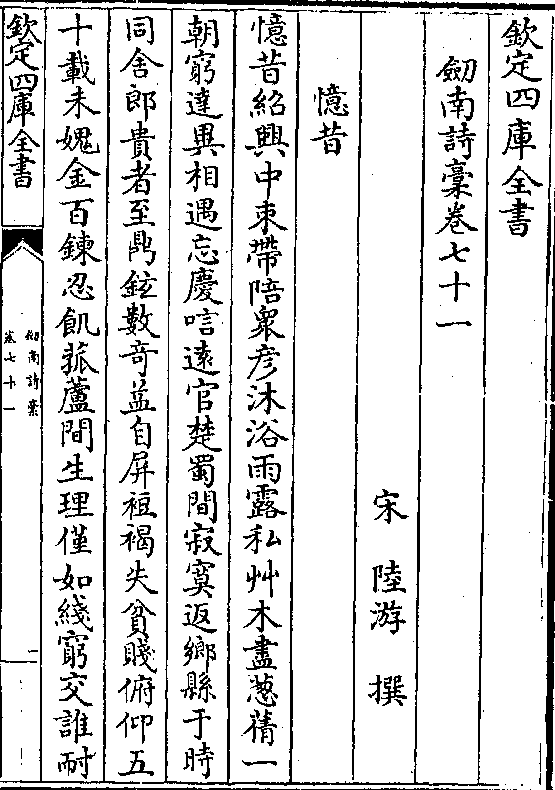 欽定四庫全書
劒南詩藁卷七十一
宋 陸游 撰
憶昔
憶昔紹興中束帶陪衆彦沐浴雨露私艸木盡葱蒨一
朝窮達異相遇忘慶唁逺官楚蜀間寂寞返鄉縣于時
同舍郎貴者至鼎鉉數竒益自屏裋褐失貧賤俯仰五
十載未媿金百鍊忍飢菰蘆間生理僅如綫窮交誰耐
欽定四庫全書
劒南詩藁
卷七十一
一